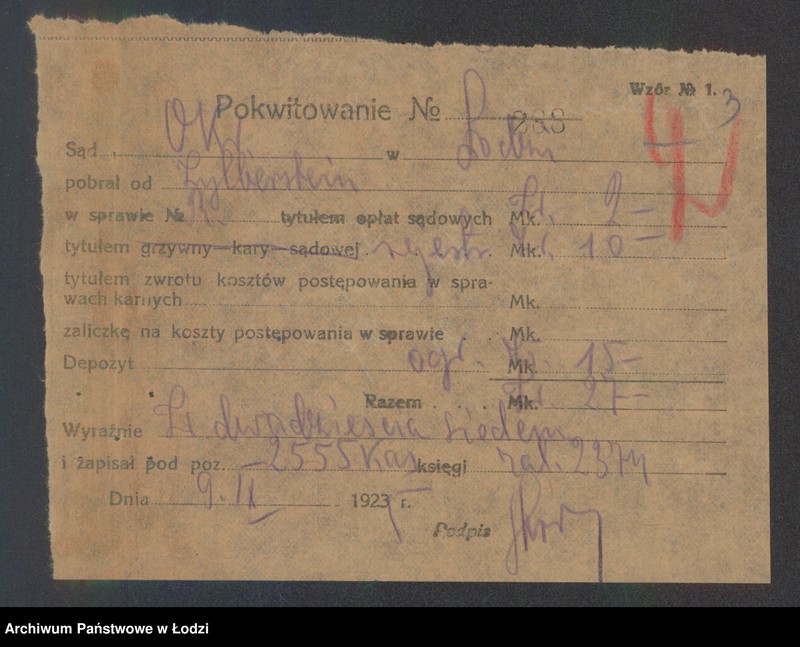 Wzór № 1. 3
Pokwitowanie № 238
Sąd Okr. w Łodzi
pobrał od Zylberstein
w sprawie № R. tytułem opłat sądowych Mk. Zł. 2-
tytułem grzywny kary sądowej rejestr. Mk. Zł. 10-
tytułem zwrotu kosztów postępowania w spra-
wach karnych Mk.
zaliczkę na koszty postępowania w sprawie Mk.
Depozyt ogł. Mk. Zł. 15-
Razem Mk. Zł. 27-
Wyraźnie Zł dwadzieścia siedem
i zapisał pod poz. 2555 Kas księgi zal. 2374
Dnia 9. IX 1925 r.
Podpis
Archiwum Państwowe w Łodzi